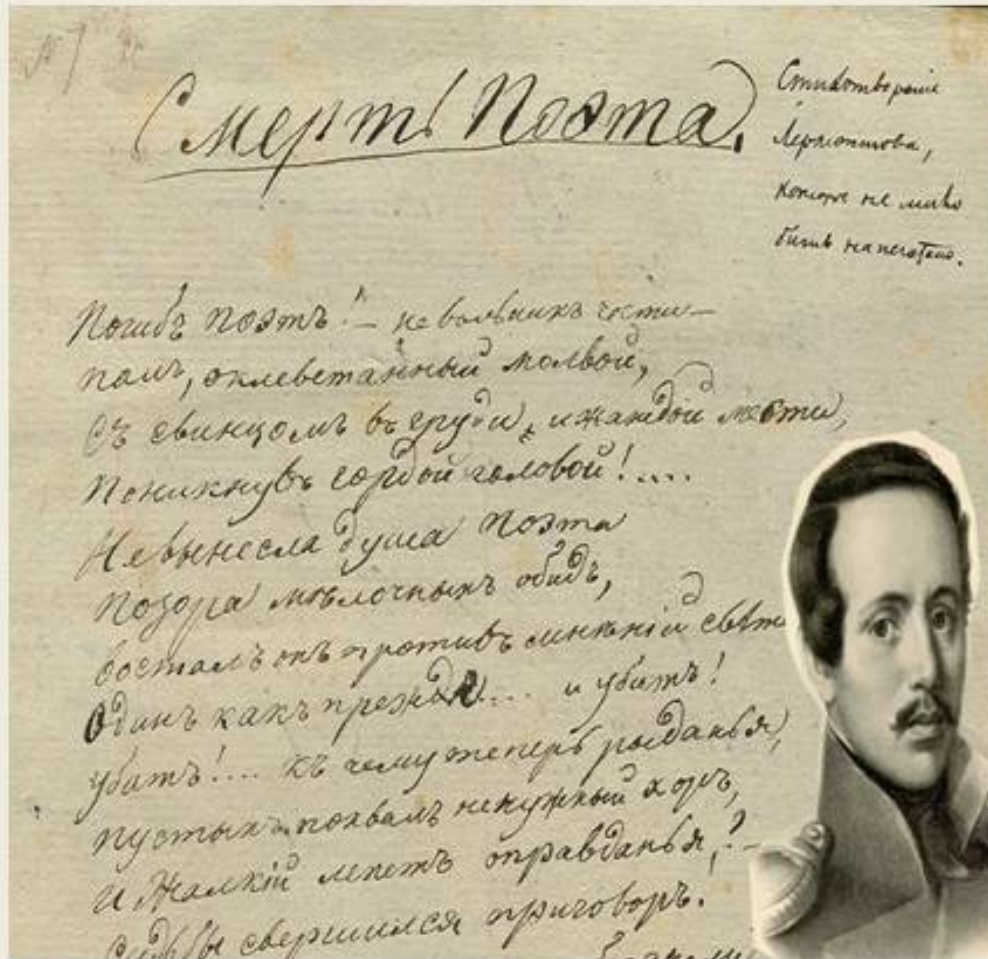 № 7
Смерть Поэта.
Стихотвореніе
Лермонтова,
которое не могло
быть напечатано.
Погибъ поэтъ! — невольникъ чести —
палъ, оклеветанный молвой,
Съ свинцомъ въ груди, и жаждой мести,
Поникнувъ гордой головой!....
Не вынесла душа поэта
позора мѣлочныхъ обидъ,
возсталъ онъ противъ мнѣній свѣта
Одинъ какъ прежде... и убитъ!
убитъ!.... къ чему теперь рыданья,
пустыхъ похвалъ ненужный хоръ,
и Жалкій лепетъ оправданья,?
Судьбы свершился приговоръ.